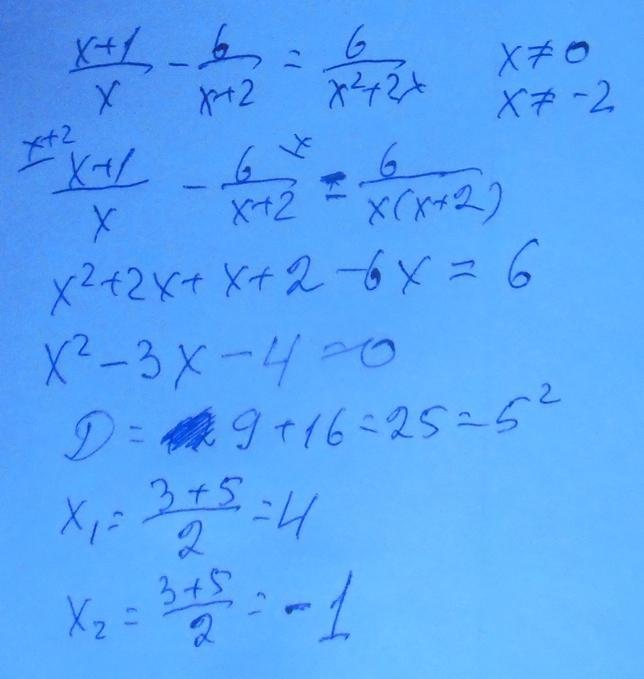 (x+1)/x - 6/(x+2) = 6/(x²+2x) x≠0
x≠-2
x+2
(x+1)/x - 6/(x+2) x = 6/(x(x+2))
x²+2x+x+2-6x=6
x²-3x-4=0
D=9+16=25=5²
x₁=(3+5)/2=4
x₂=(3+5)/2=-1